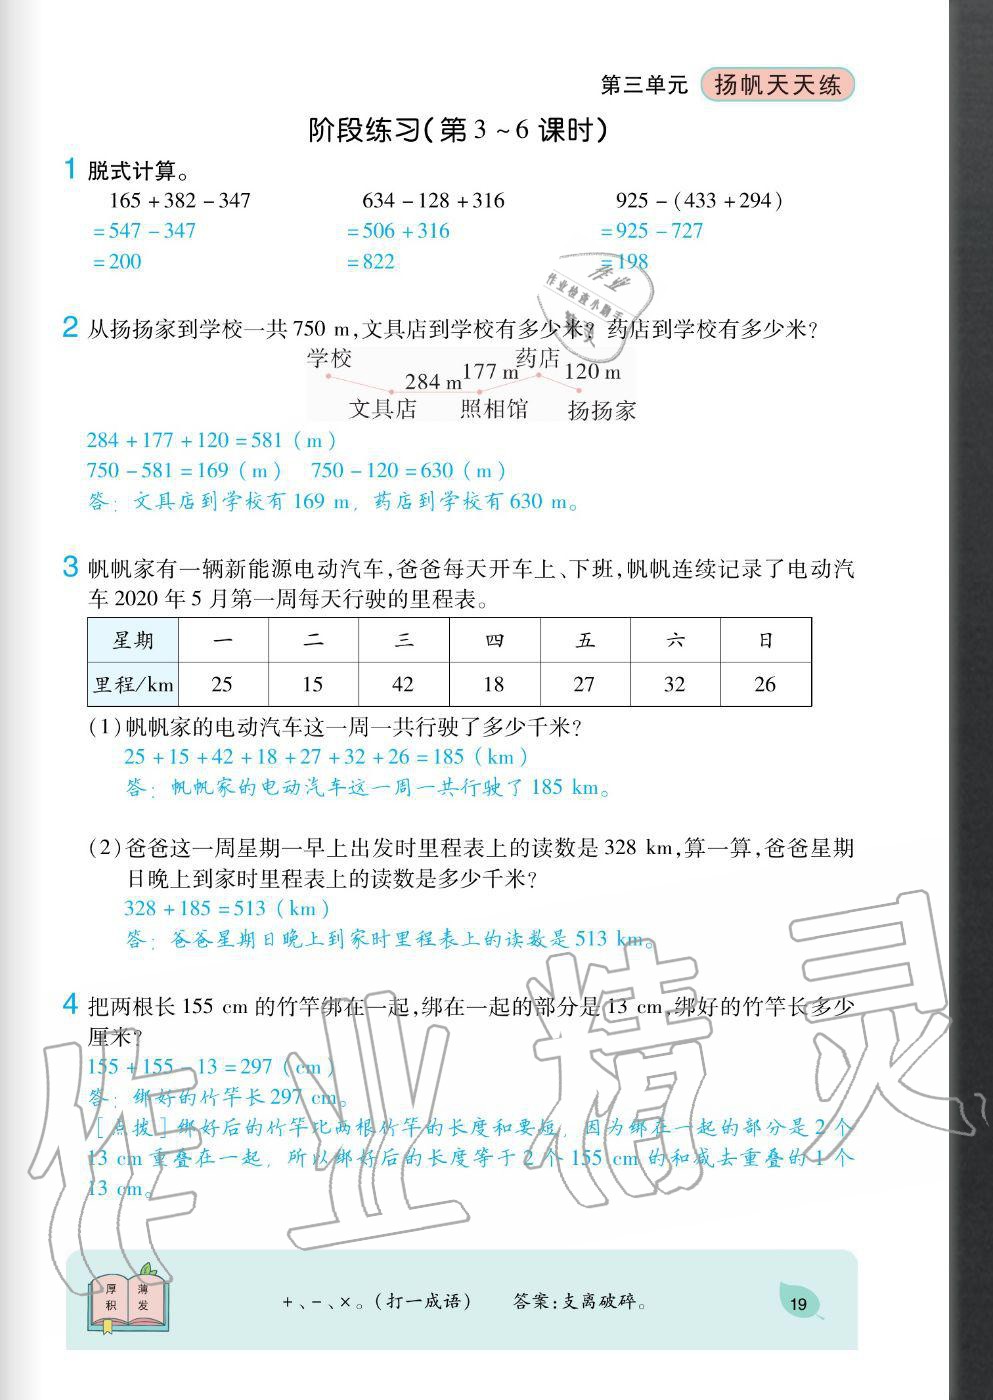 第三单元 扬帆天天练
阶段练习(第3~6课时)
1 脱式计算。
165+382-347 634-128+316 925-(433+294)
=547-347 =506+316 =925-727
=200 =822 =198
2 从扬扬家到学校一共750 m,文具店到学校有多少米?药店到学校有多少米?
学校 药店
284 m 177 m 120 m
文具店 照相馆 扬扬家
284+177+120=581(m)
750-581=169(m) 750-120=630(m)
答:文具店到学校有169 m,药店到学校有630 m。
3 帆帆家有一辆新能源电动汽车,爸爸每天开车上、下班,帆帆连续记录了电动汽
车2020年5月第一周每天行驶的里程表。
星期 一 二 三 四 五 六 日
里程/km 25 15 42 18 27 32 26
(1)帆帆家的电动汽车这一周一共行驶了多少千米?
25+15+42+18+27+32+26=185(km)
答:帆帆家的电动汽车这一周一共行驶了185 km。
(2)爸爸这一周星期一早上出发时里程表上的读数是328 km,算一算,爸爸星期
日晚上到家时里程表上的读数是多少千米?
328+185=513(km)
答:爸爸星期日晚上到家时里程表上的读数是513 km。
4 把两根长155 cm的竹竿绑在一起,绑在一起的部分是13 cm,绑好的竹竿长多少
厘米?
155+155-13=297(cm)
答:绑好的竹竿长297 cm。
[点拨]绑好后的竹竿比两根竹竿的长度和要短,因为绑在一起的部分是2个
13 cm重叠在一起,所以绑好后的长度等于2个155 cm的和减去重叠的1个
13 cm。
作业精灵
厚积 薄发
+、-、×。(打一成语) 答案:支离破碎。
19